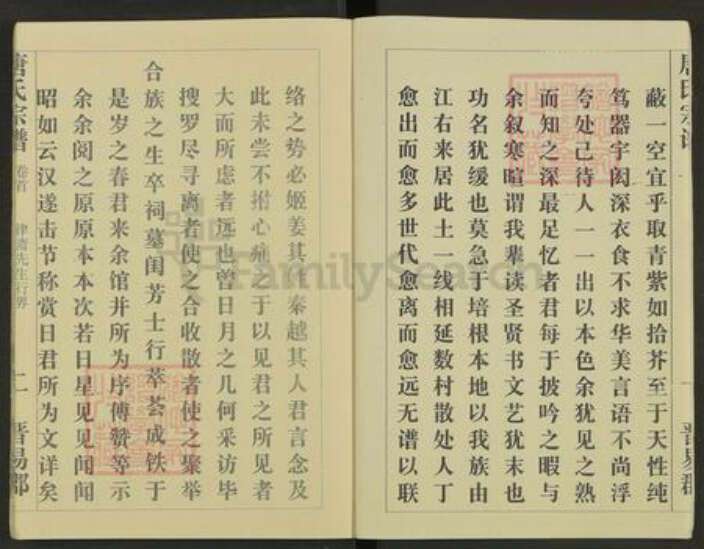 唐氏宗谱
晋易郡
蔽一空宜乎取青紫如拾芥至于天性纯
笃器宇闳深衣食不求华美言语不尚浮
夸处己待人一一出以本色余犹见之熟
而知之深最足忆者君每于披吟之暇与
余叙寒暄谓我辈读圣贤书文艺犹末也
功名犹缓也莫急于培根本地以我族由
江右来居此土一线相延数村散处人丁
愈出而愈多世代愈离而愈远无谱以联
络之势必姬姜其秦越其人君言念及
此未尝不拊心痛于以见君之所见者
大而所虑者远也曾日月之几何采访毕
搜罗尽寻离者使之合收散者使之聚举
合族之生卒祠墓闺芳士行萃荟成铁于
是岁之春君来余馆并所为序傅赞等示
余余阅之原原本本次若日星见见闻闻
昭如云汉遂击节称赏日君所为文详矣
唐氏宗谱
卷首
先生行界
二
晋易郡
FamilySearch